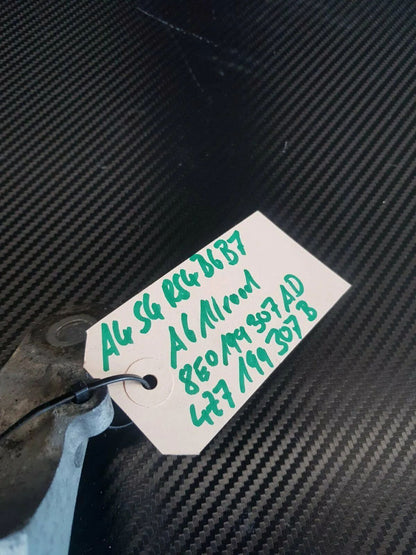 A4 S4 RS4 B6B7
A6 Allroad
8E0 199 307 AD
4Z7 199 307 B